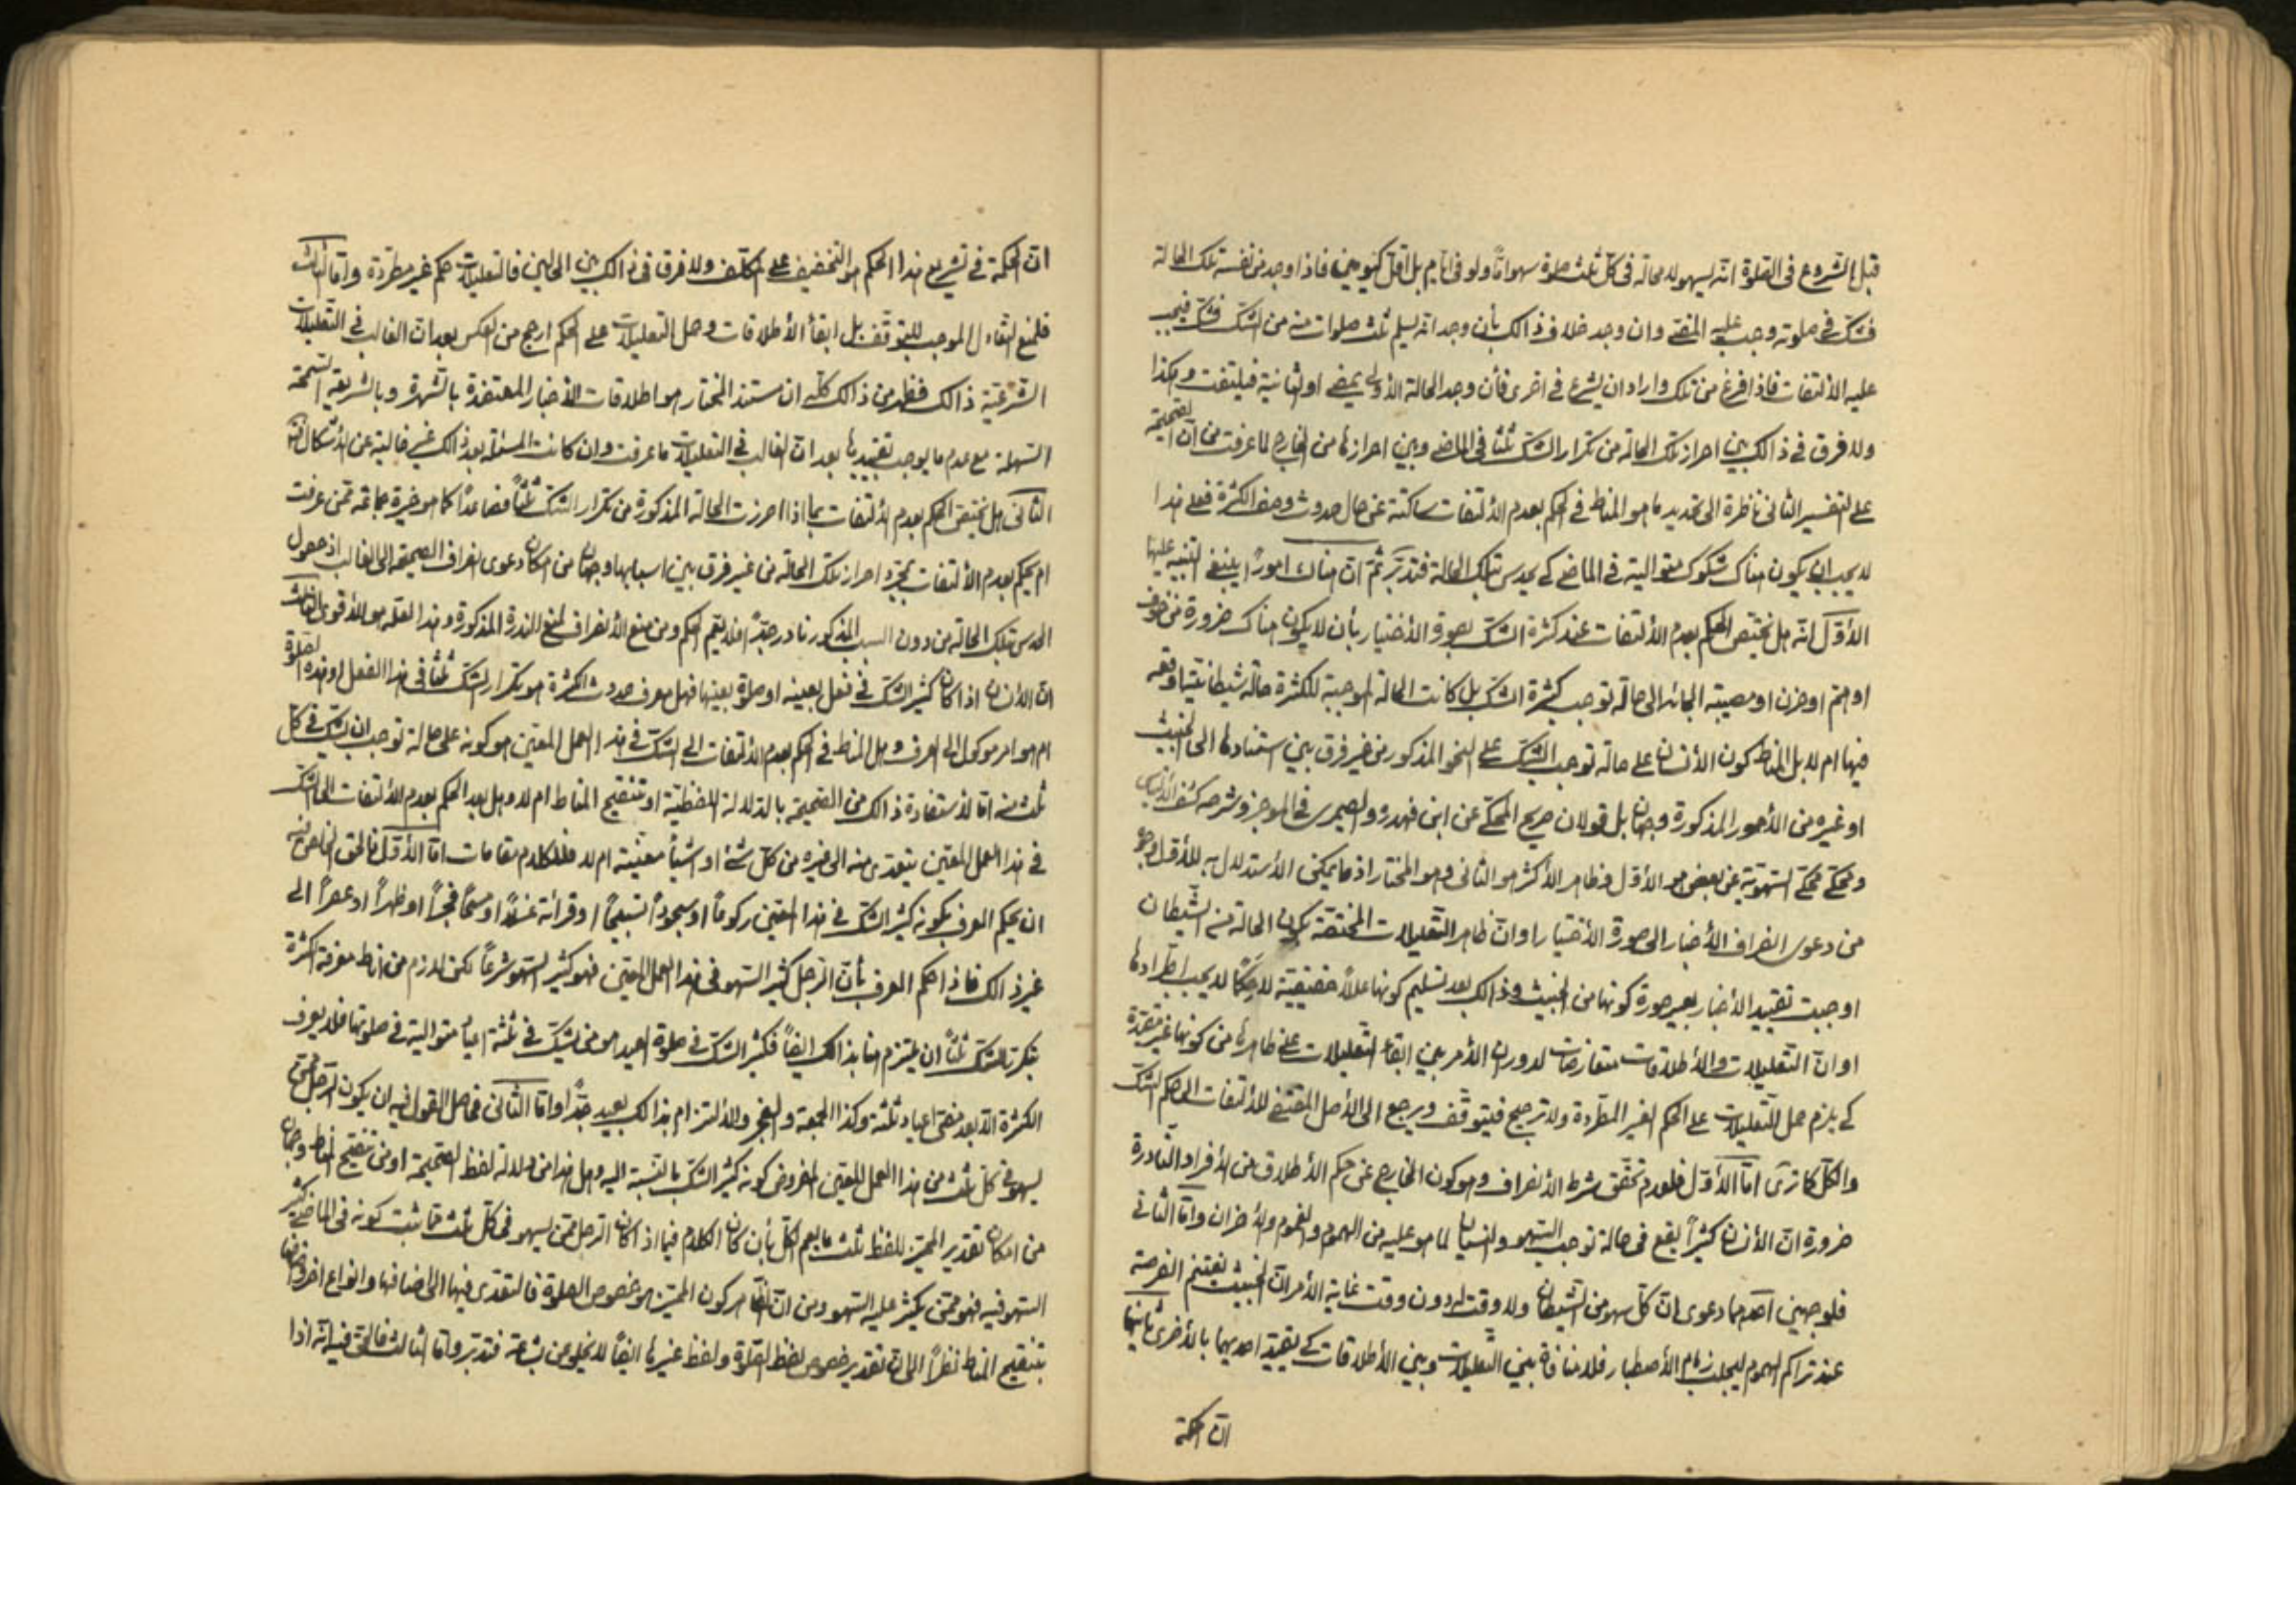 قبل الشروع فى الصلوة انه يسهو لا محالة فى كل ثلث صلوة سهوا تاما ولو فى ايام بل اقل كيومين فاذا وجد من نفسه تلك الحالة
فشك فى صلوته وجب عليه المضى وان وجد خلاف ذالك بأن وجد انه يسلم ثلث صلوات منه من الشك فشك فيجب
عليه الألتفات فاذا فرغ من تلك واراد ان يشرع فى اخرى فأن وجد الحالة الأولى يمضى او الثانية فيلتفت وهكذا
ولا فرق فى ذالك بين احراز تلك الحالة من تكرار الشك ثلثا فى الماضى وبين احرازها من الخارج لما عرفت من ان الصحيحة
على التفسير الثانى ناظرة الى تحديد ما هو المناط فى الحكم بعدم الألتفات ساكتة عن حال حدوث وصف الكثرة فعلى هذا
لا يجب ان يكون هناك شكوك متوالية فى الماضى كى يحدس بتلك الحالة فتدبر ثم ان هناك امورا ينبغى التنبيه عليها
الأول انه هل يختص الحكم بعدم الألتفات عند كثرة الشك بصورة الأختيار بأن لا يكون هناك ضرورة من خوف
او هم او حزن او مصيبة الجائه الى حالة توجب كثرة الشك بل كانت الحالة الموجبة للكثرة حالة شيطانية واقعه
فيها ام لا بل المناط كون الأنسان على حالة توجب الشك على النحو المذكور من غير فرق بين استنادها الى الخبيث
او غيره من الأمور المذكورة وجهان بل قولان صريح المحكى عن ابن فهد ره والصيمرى فى الموجز وشرحه كشف الألتباس
ومحكى محكى السهوية عن بعض هو الأول وظاهر الأكثر هو الثانى وهو المختار اذ ما يمكن الأستدلال به للأول وجوه
من دعوى انصراف الأخبار الى صورة الأختيار او ان ظاهر التعليلات المختصة بكون الحالة من الشيطان
اوجبت تقييد الأخبار بغير صورة كونها من الخبيث وذالك بعد تسليم كونها عللا حقيقية لا حكما لا يجب اطرادها
او ان التعليلات والأطلاقات متعارضات لدوران الأمر بين ابقاء التعليلات على ظاهرها من كونها غير مقيدة
كى يلزم حمل التعليلات على الحكم الغير المطردة ولا ترجيح فيتوقف ويرجع الى الأصل المقتضى للألتفات الى حكم الشك
والكل كما ترى اما الأول فلعدم تحقق شرط الأنصراف وهو كون الخارج عن حكم الأطلاق من الأفراد النادرة
ضرورة ان الأنسان كثيرا يقع فى حالة توجب السهو والنسيان لما هو عليه من الهموم والغموم والأحزان واما الثانى
فلوجهين احدهما دعوى ان كل سهو من الشيطان ولا وقت له دون وقت غاية الأمر ان الخبيث يغتنم الفرصة
عند تراكم الهموم ليجلب زمام الأصطبار فلا منافاة بين التعليلات وبين الأطلاقات كى يقيد احديهما بالأخرى ثانيهما
ان الحكمة
ان الحكمة فى تشريع هذا الحكم هو التخفيف على المكلف ولا فرق فى ذالك بين الحالين فالتعليلات حكم غير مطردة واما الثالث
فلمنع التعادل الموجب للتوقف بل ابقأ الأطلاقات وحمل التعليلات على الحكم ارجح من العكس بعد ان الغالب فى التعليلات
الشرعية ذالك فظهر من ذالك كله ان مستند المختار هو اطلاقات الأخبار المعتضدة بالشهرة وبالشريعة السمحة
السهلة مع عدم ما يوجب تقييدها بعد ان الغالب فى التعليلات ما عرفت وان كانت المسئلة بعد ذالك غير خالية عن الأشكال
الثانى هل يختص الحكم بعدم الألتفات بما اذا احرزت الحالة المذكورة من تكرار الشك ثلثا فصاعدا كما هو خيرة جماعة ممن عرفت
ام يحكم بعدم الألتفات بمجرد احراز تلك الحالة من غير فرق بين اسبابها وجهان من امكان دعوى انصراف الصحيحة الى الغالب اذ حصول
الحدس بتلك الحالة من دون السبب المذكور نادر جدا فلا يعم الحكم ومن منع الأنصراف لمنع الندرة المذكورة وهذا لعله هو الأقوى الثالث
ان الأنسان اذا كان كثير الشك فى فعل بعينه او صلوة بعينها فهل معرف حدوث الكثرة هو تكرار الشك ثلثا فى هذا الفعل او هذه الصلوة
ام هو امر موكول الى العرف وهل المناط فى الحكم بعدم الألتفات الى الشك فى هذا العمل المعين هو كونه على حالة توجب ان يشك فى كل
ثلث منه اما لأستفادة ذالك من الصحيحة بالدلالة اللفظية او تنقيح المناط ام لا وهل بعد الحكم بعدم الألتفات الى الشك
فى هذا العمل المعين يتعدى منه الى غيره من كل شئ او اشيأ معينة ام لا فللكلام مقامات اما الأول فالحق الخاص فيه
ان يحكم العرف بكونه كثير الشك فى هذا المعين ركوعا او سجودا تسبيحا او قرائة غسلا او مسحا فجرا او ظهرا او عصرا الى
غير ذالك فاذا حكم العرف بأن الرجل كثير السهو فى هذا العمل المعين فهو كثير السهو شرعا لكن لازم من اناط معرفة الكثرة
بتكرر الشك ثلثا ان يلتزم هنا بذالك ايضا فكثير الشك فى صلوة العيد هو من يشك فى ثلثة اعياد متوالية فى صلوتها فلا يعرف
الكثرة الا بعد مضى اعياد ثلثة وكذا الجمعة والفجر والألتزام بذالك بعيد جدا واما الثانى فحاصل القول فيه ان يكون الرجل ممن
يسهو فى كل ثلث من هذا العمل المعين المفروض كونه كثير الشك بالنسبة اليه وهل هذا من دلالة لفظ الصحيحة او من تنقيح المناط وجهان
من امكان تقدير المميز للفظ ثلث ما يعم الكل بأن كان الكلام فيما اذا كان الرجل ممن يسهو فى كل ثلث مما ثبت كونه فى الماضى كثير
السهو فيه فهو ممن يكثر عليه السهو ومن ان الظاهر كون المميز هو خصوص الصلوة فالتعدى فيها الى اصنافها وانواع اخر
بتنقيح المناط نظرا الى ان تقدير خصوص لفظ الصلوة ولفظ غيرها ايضا لا يخلو من بشاعة فتدبر واما الثالث فالحق فيه انه اذا